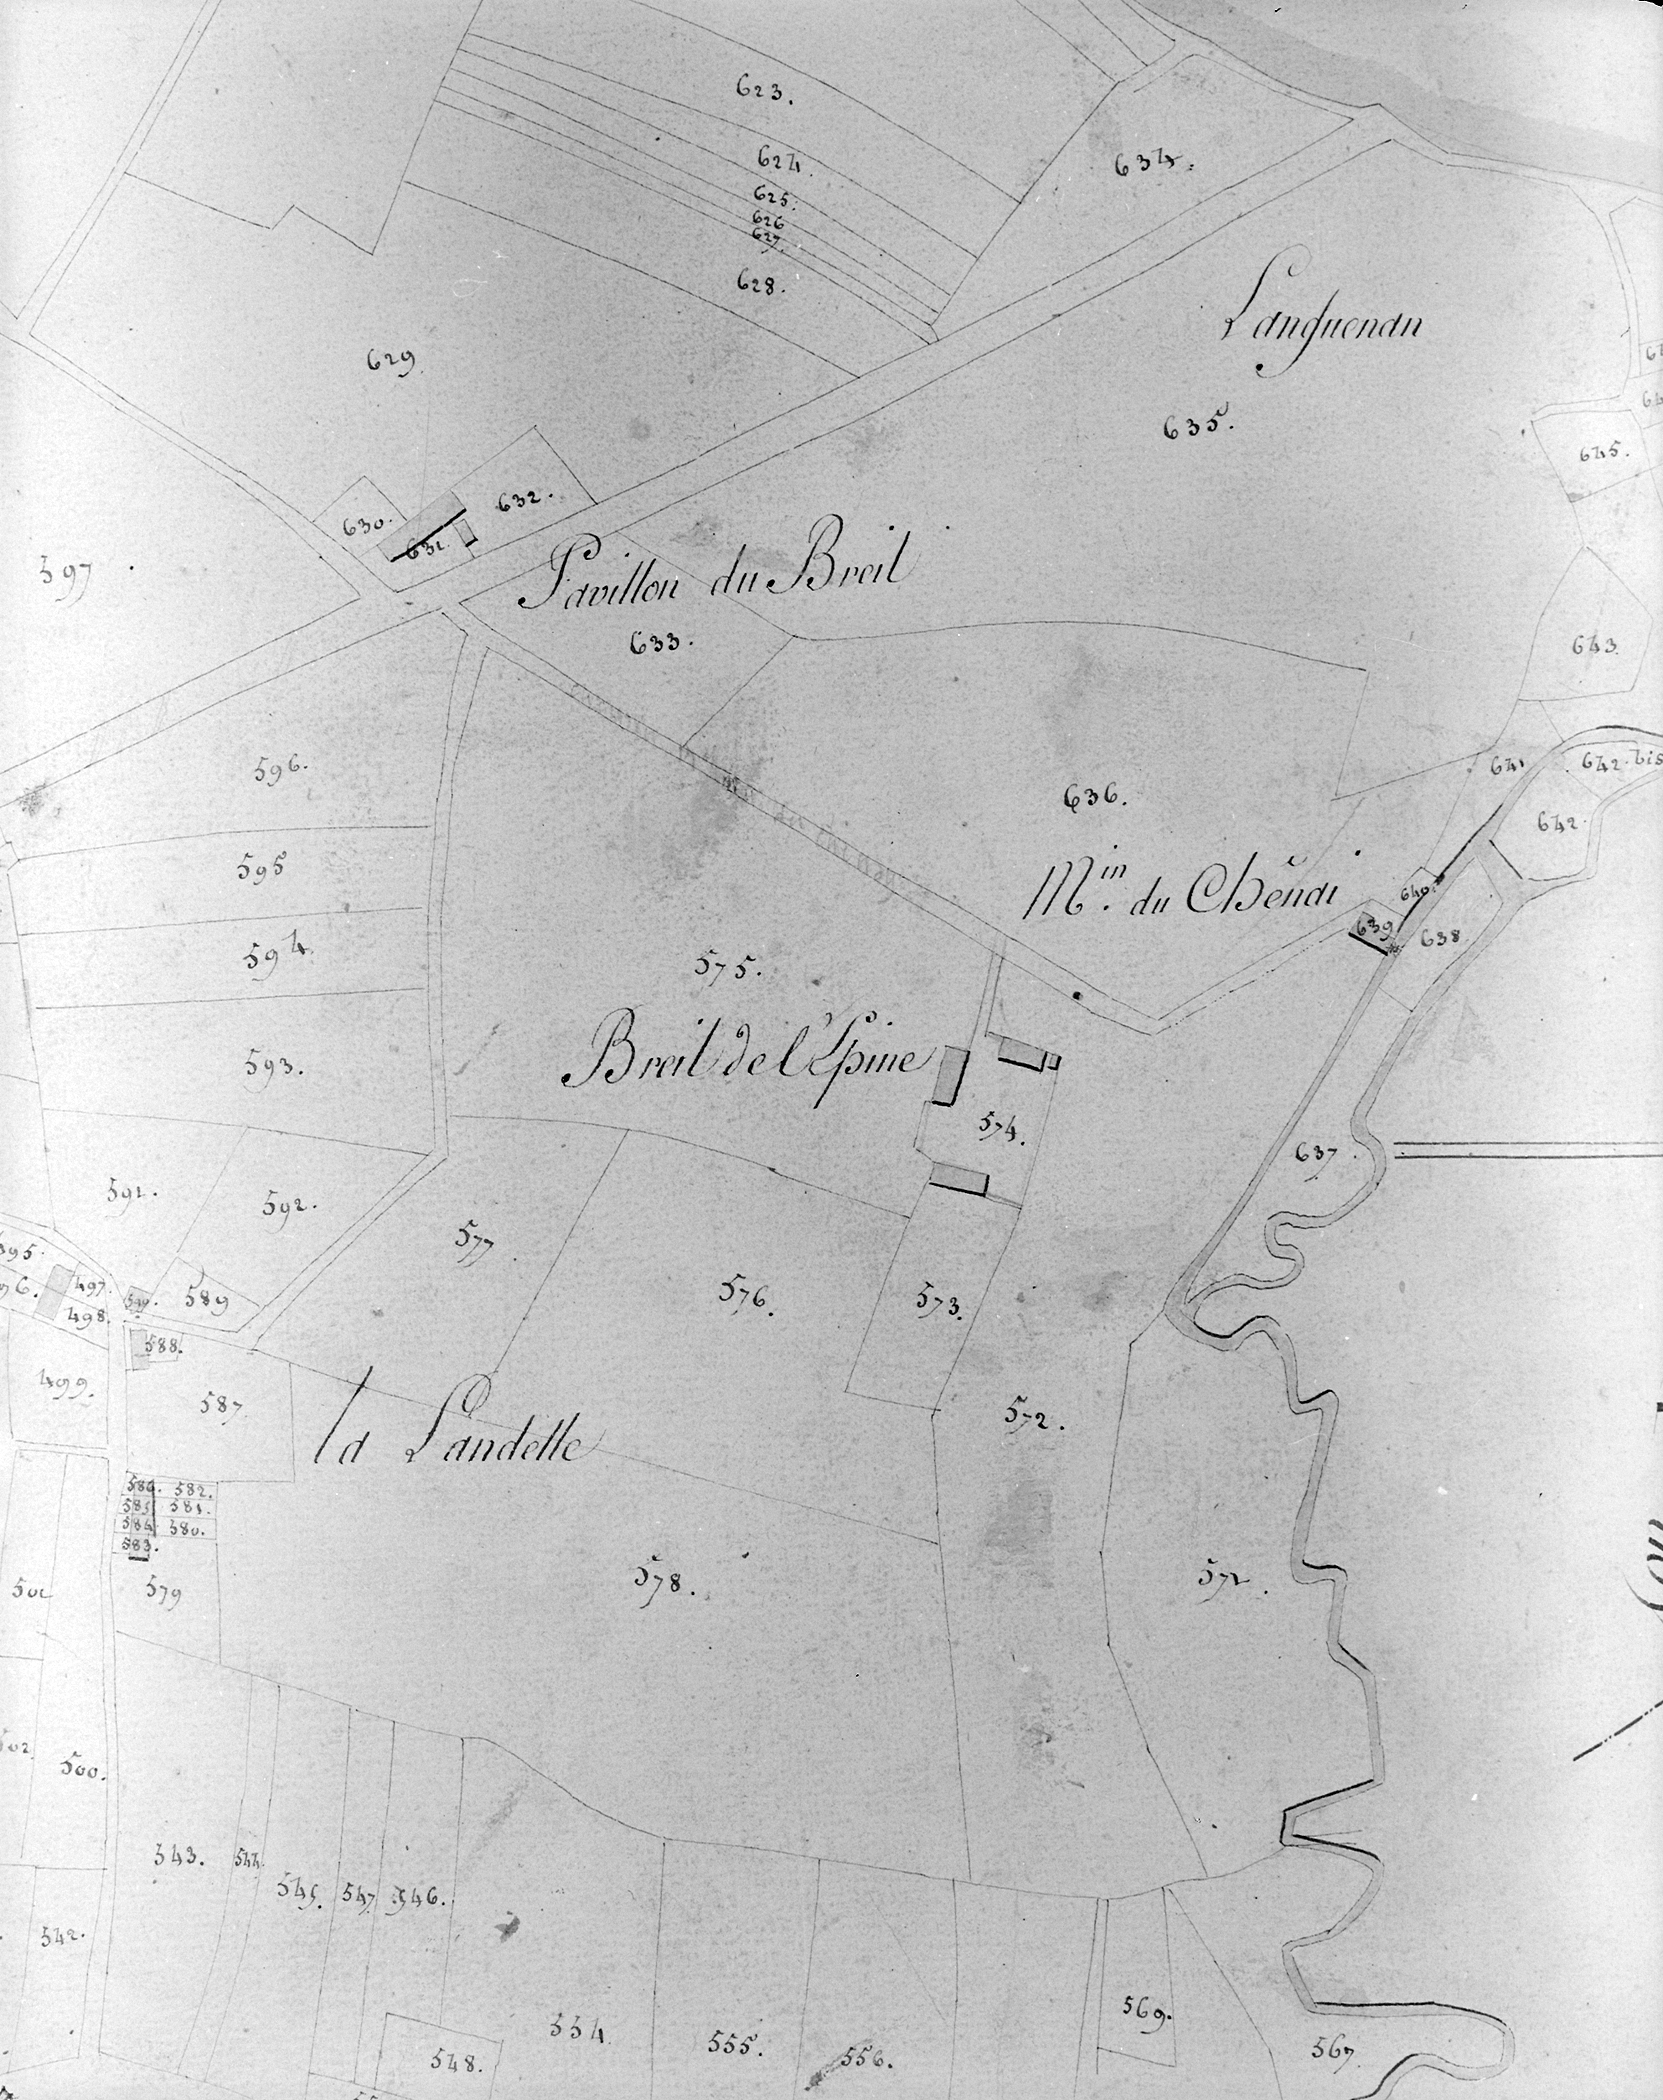 623.
624.
634.
625.
626
627.
628.
Languenan
629.
635.
645.
632.
630.
631.
Pavillon du Breil
597
633.
643.
596.
641
642. bis
636.
642.
595
Min. du Chênai
640.
639
638.
594.
575.
593.
Breil de l'Epine
574.
637.
591.
592.
577.
497.
589
576.
573.
498.
588.
499.
587.
572.
la Landelle
582.
585
581.
584
580.
583.
579
578.
571.
500.
543.
544.
545.
547.
546.
542.
554
569.
555.
548.
556.
567.